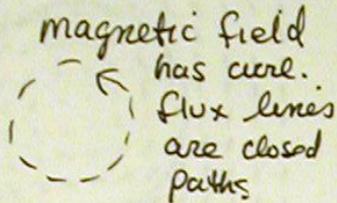 magnetic field
has curl.
flux lines
are closed
paths